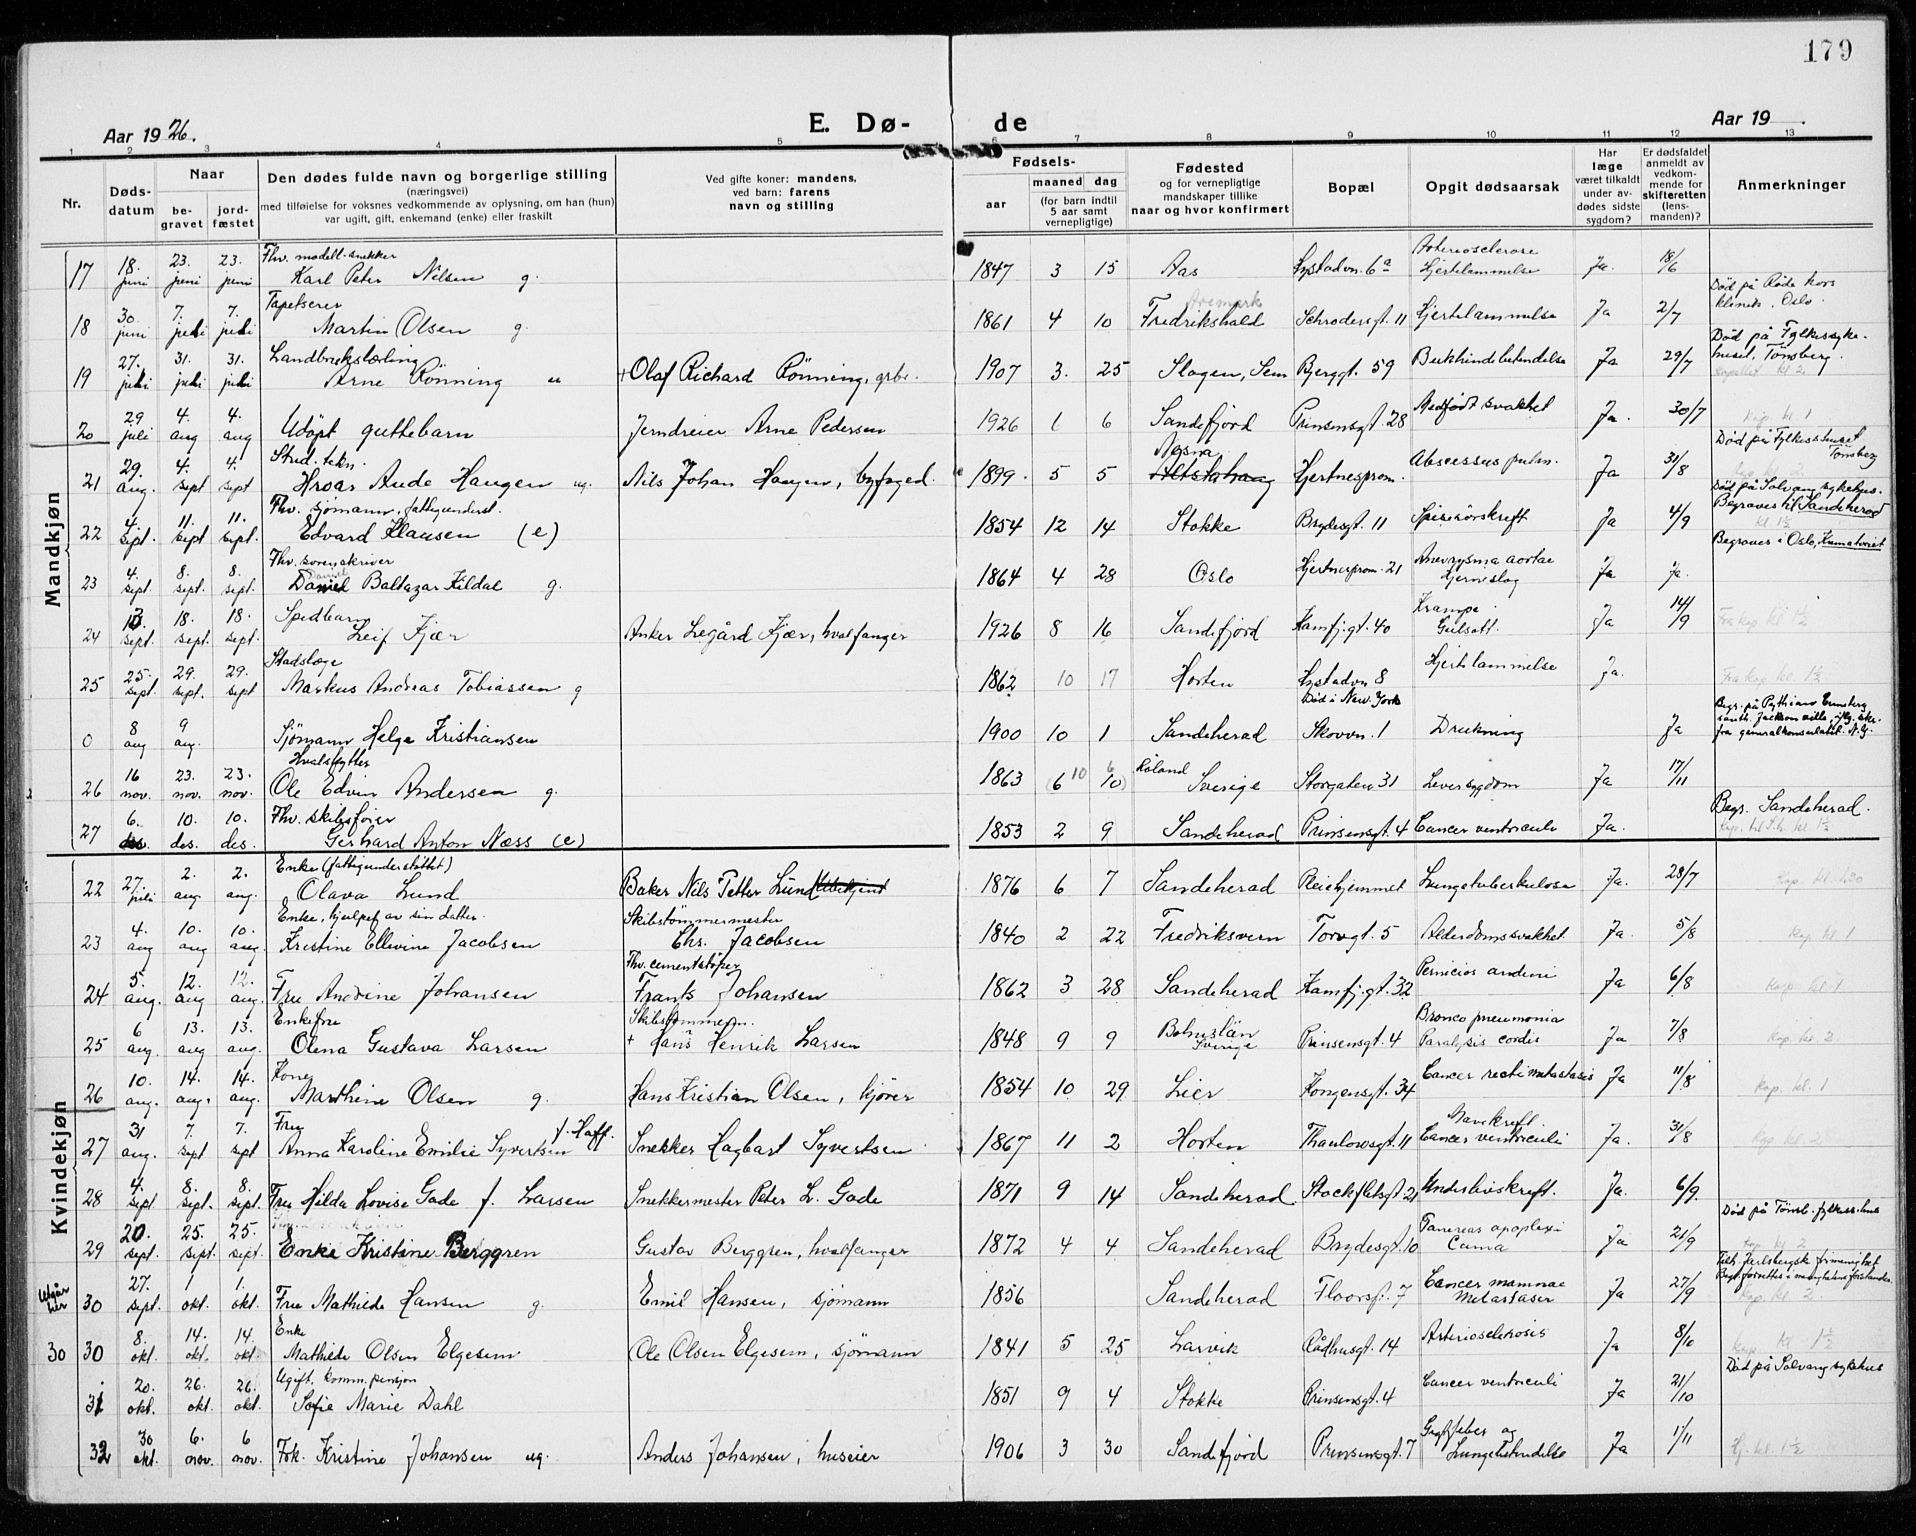 179
Aar 1926.
E. Dø- de
Aar 19 .
1 2 3 4 5 6 7 8 9 10 11 12 13
Nr.
Døds-datum
Naar
be-gravet
jord-fæstet
Den dødes fulde navn og borgerlige stilling
(næringsvei)
med tilføielse for voksnes vedkommende av oplysning, om han (hun)
var ugift, gift, enkemand (enke) eller fraskilt
Ved gifte koner: mandens,
ved barn: farens
navn og stilling
Fødsels-
aar
maaned
dag
(for barn indtil
5 aar samt
vernepligtige)
Fødested
og for vernepligtige
mandskaper tillike
naar og hvor konfirmert
Bopæl
Opgit dødsaarsak
Har
læge
været tilkaldt
under av-
dødes sidste
sygdom?
Er dødsfaldet
anmeldt av
vedkom-
mende for
skifteretten
(lens-
manden)?
Anmerkninger
Mandkjøn
17 18. juni 23. juni 23. juni Fhv. modell-snekker Karl Peter Nilsen g. 1847 3 15 Aas Lystadvn. 6a Arteriosclerose Hjertelammelse Ja. 18/6
18 30 juni 7. juli 7. juli Tapetserer Martin Olsen g. 1861 4 10 Aremark Fredrikshald Schrodersgt. 11 Hjertelammelse Ja 2/7 Død på Røde kors klinik. Oslo.
19 27. juli 31. juli 31. juli Landbrukslærling Arne Rönning u +Olaf Richard Rönning, arb. 1907 3. 25 Slagen, Sem Bjerggt. 59 Bukhindebetendelse Ja 29/7 Død på Fylkessyke-huset, Tönsberg. Kapellet kl 2.
20 29 juli 4. aug 4. aug Udöpt guttebarn Jerndreier Arne Pedersen 1926 1 6 Sandefjord Prinsensgt. 28 Medfödt svakhet Ja. 30/7 Kap. kl. 1
21 29. aug. 4. sept 4. sept Stud. tekn. Hroar Aude Haugen ug. Nils Johan Haugen, byfoged. 1899. 5 5 Nesna Alstahaug Hjertnesprom. Abscessus pulm. Ja 31/8 Död på Fylkessh​uset Tönsberg
22 4. sept. 11. sept 11. sept. Fhv. sjömann, fattigunderst. Edvard Klausen (e) 1854 12 14 Stokke Brydesgt. 11 Spiserörskreft Ja 4/9 Död på Solvang sykehus. Begraves til Sandeherad kl 1½
23 4. sept. 8. sept. 8. sept. Fhv. sorenskriver Daniel Baltazar Kildal g. 1864 4 28 Oslo Hjertnesprom. 21 Anevrysma aortae Hjerneslag Ja Ja. Begraves i Oslo, Krematoriet
24 13 sept. 18. sept. 18. sept. Spedbarn Leif Fjær Anker Legård Fjær, hvalfanger 1926 8 16 Sandefjord Kamfj.gt. 40 Krampe Gulsott. Ja 14/9 Fra kap kl 1½
25 25. sept. 29. sept. 29. sept Stadslæge Markus Andreas Tobiassen g 1862 10 17 Horten Lystadvn 8 Hjertelammelse Ja. Fra kap. kl. 1½
0 8 aug 9 aug. Sjömann Helge Kristiansen 1900 10 1 Sandeherad Död i New York Skovvn. 1 Drukning Ja fra generalkonsulatet N.Y.
26 16 nov. 23. nov. 23. nov. Hvalskytter Ole Edvin Andersen g. 1863 (6 10 6 10) Röland Sverige Storgaten 31 Leversygdom Ja 17/11
27 6. des. 10. des. 10. des. Fhv. skibsförer Gerhard Anton Næss (e) 1853 2 9 Sandeherad Prinsensgt. 4 Cancer ventriculi Ja. Begr. Sandeherad.
Kvindekjøn
22 27. juli 2. aug. 2. aug. Enke (fattigunderstöttet) Olava Lund Baker Nils Petter Lund 1876 6 7 Sandeherad Pleiehjemmet Lungetuberkulose Ja. 28/7 Kap. kl. 1.30
23 4. aug 10. aug 10. aug. Enke, hjulpet av sin datter. Kristine Ellevine Jacobsen Skibstömmermester Chr. Jacobsen 1840 2 22 Fredriksvern Torvgt. 5 Alderdomssvakhet Ja. 5/8 Kap. kl. 1
24 5. aug. 12. aug 12. aug. Fru Andrine Johansen Fhv. cementstöper Frants Johansen 1862 3 28 Sandeherad Kamfj.gt. 32 Perniciös anämi Ja 6/8 Kap. kl. 1
25 6 aug. 13. aug 13. aug. Enkefru Olena Gustava Larsen Skibstömmerm. + Hans Henrik Larsen 1848 9 9 Bohuslän Sverige Prinsensgt. 4 Bronco pneumonia Paralysis cordis Ja 7/8 Kap. kl. 2.
26 10. aug. 14. aug. 14. aug. Kone Marthine Olsen g. Hans Kristian Olsen, kjörer 1854 10 29 Lier Kongensgt. 34 Cancer recti metastasis Ja 11/8 Kap. kl. 1
27 31 aug. 7. sept 7. sept Fru Anna Karoline Emilie Syvertsen f. Hoff. Snekker Hagbart Syvertsen 1867 11 2 Horten Thaulowsgt. 11 Mavekreft. Cancer ventriculi Ja. 31/8 Kap. kl. 2
28 4. sept 8. sept. 8. sept. Fru Hilda Lovise Gade f. Larsen Snekkermester Peter L. Gade 1871 9 14 Sandeherad Stockfletsgt 21 Underlivskreft. Ja. 6/9.
29 20. sept. 25. sept. 25. sept. Enke Kristine Berggren Gustav Berggren, hvalfanger 1872 4 4 Sandeherad Brydesgt. 10 Pancreas apoplexi Coma Ja 21/9 Död på Tönsb. fylkess.hus Kap kl 2
Utgår her 30 27. sept. 1 okt. 1. okt. Fru Mathilde Hansen g. Emil Hansen, sjömann 1856 Sandeherad Floorsgt. 7 Cancer mammae Metastaser Ja 27/9 Tilh. Jarlsbergske frimenighet Begr. forrettes i menighetens forstander Kap. kl. 2
30 30 8. okt. 14. okt. 14. okt. Enke Mathilde Olsen Elgesem. Ole Olsen Elgesem, sjömann 1841 5 25 Larvik Rådhusgt. 14 Arteriosclerosis Ja 8/10 Kap kl 1½
31 20. okt. 26. okt. 26. okt. Ugift. Komm. pensjon Sofie Marie Dahl 1851 9 4 Stokke Prinsensgt. 4 Cancer ventriculi Ja 21/10 Död på Solvang sykehus
32 30 okt. 6. nov. 6 nov. Frk. Kristine Johansen ug. Anders Johansen, huseier 1906 3 30 Sandefjord Prinsensgt. 7 Giftfeber og Lungebetendelse Ja 1/11 Hj. kl. 1½